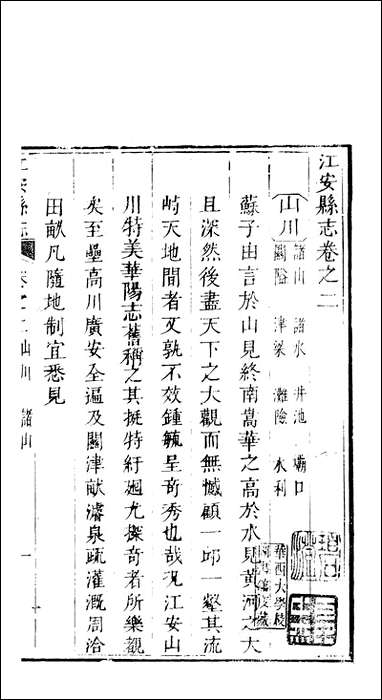 江安縣志卷之二
山川
諸山 諸水 井池 場口
關隘 津梁 灘險 水利
蘇子由言於山見終南嵩華之高於水見黃河之大
且深然後盡天下之大觀而無憾顧一邱一壑其流
峙天地間者又孰不效鍾毓呈奇秀也哉况江安山
川特美華陽志舊稱之其挺特紆廻尤探奇者所樂觀
矣至壘高川廣安全遍及關津畎濬泉疏灌溉周洽
田畝凡隨地制宜悉見
江安縣志
卷之二山川 諸山
一
華西大學校
圖書館收藏